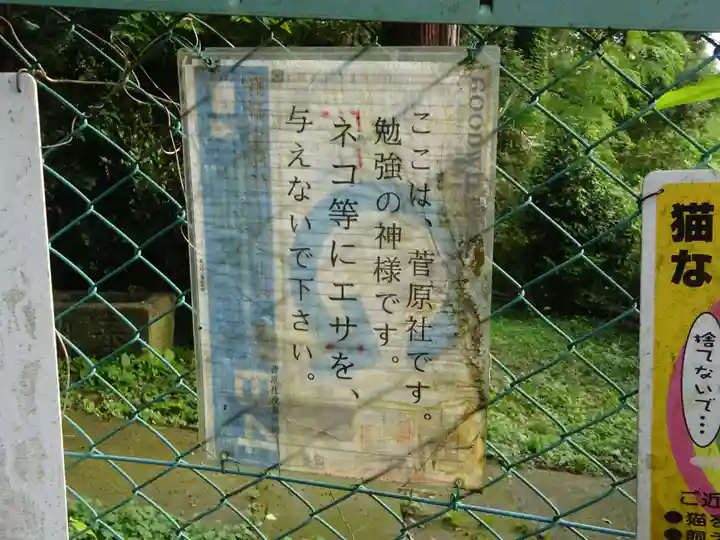 ここは、菅原社です。
勉強の神様です。
ネコ等にエサを、
与えないで下さい。
GOODWILL
猫
な
捨てないで…
ご近
●猫
●飼